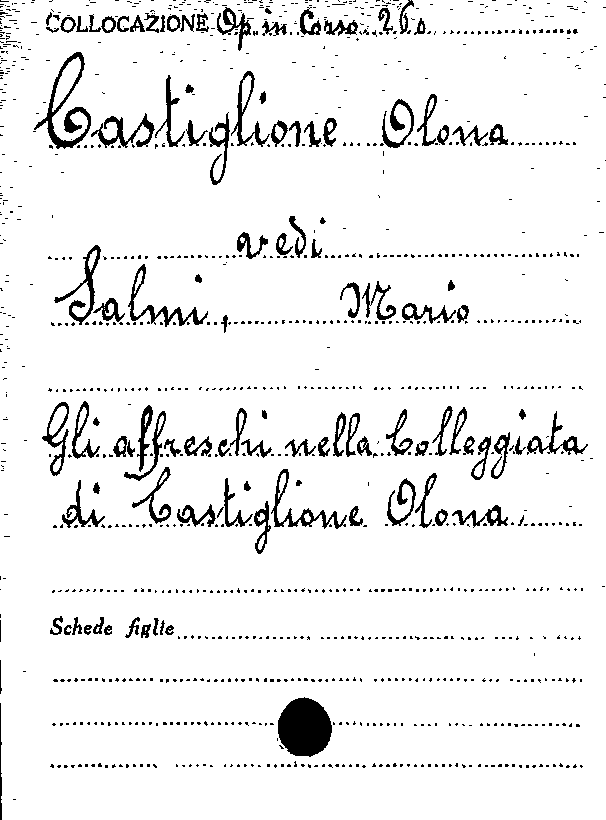 COLLOCAZIONE Op. in Corso. 260
Castiglione Olona
vedi
Salmi, Mario
Gli affreschi nella Colleggiata
di Castiglione Olona.
Schede figlie